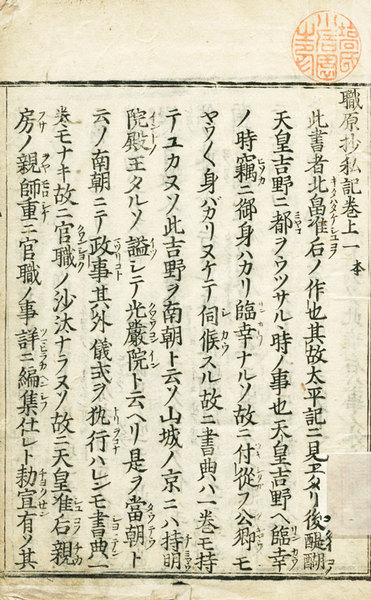 職原抄私記巻上一 本
此書者北畠准后ノ作也其故太平記ニ見エタリ後醍醐
天皇吉野ニ都ヲウツサルヽ時ノ事也天皇吉野ヘ臨幸
ノ時竊ニ御身ハカリ臨幸ナルソ故ニ付從フ公卿モ
ヤウ〱身バガリヌケテ伺候スル故ニ書典ハ一巻モ持
テユカヌソ此吉野ヲ南朝ト云ソ山城ノ京ニハ持明
院殿王タルソ謚シテ光嚴院ト云ヘリ是ヲ當朝ト
云ノ南朝ニテ政事其外儀式ヲ執行ハレンモ書典一
巻モナキ故ニ官職ノ沙汰ナラヌソ故ニ天皇准后親
房ノ親師重ニ官職ノ事詳ニ編集仕レト勅宣有ソ其